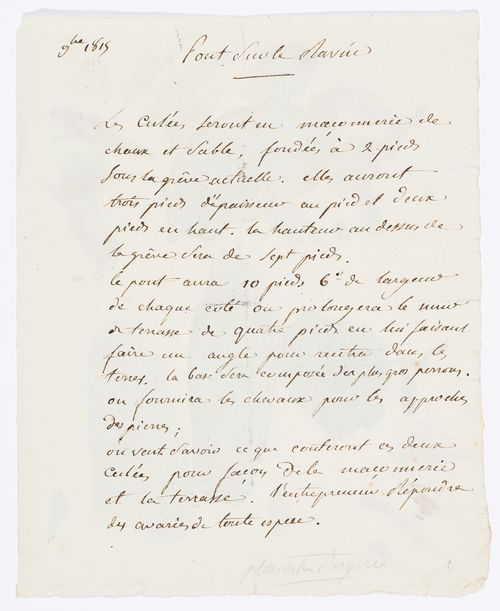 9bre 1815
Pont sur le Ravin
Les culées seront en maçonnerie de
chaux et sable, fondées à 2 pieds
sous la grêve actuelle. elles auront
trois pieds d'épaisseur au pied et deux
pieds en haut. la hauteur au dessus de
la grêve sera de sept pieds.
le pont aura 10 pieds 6° de largeur
de chaque coté on prolongera le mur
de terrasse de quatre pieds en lui faisant
faire un angle pour rentrer dans les
terres. la base sera composée des plus gros
on fournira les chevaux pour les approches
des pierres;
on veut savoir ce que couteront ces deux
culées pour façon de la maçonnerie
et la terrasse. l'entrepreneur Répondra
des avaries de toute espece.